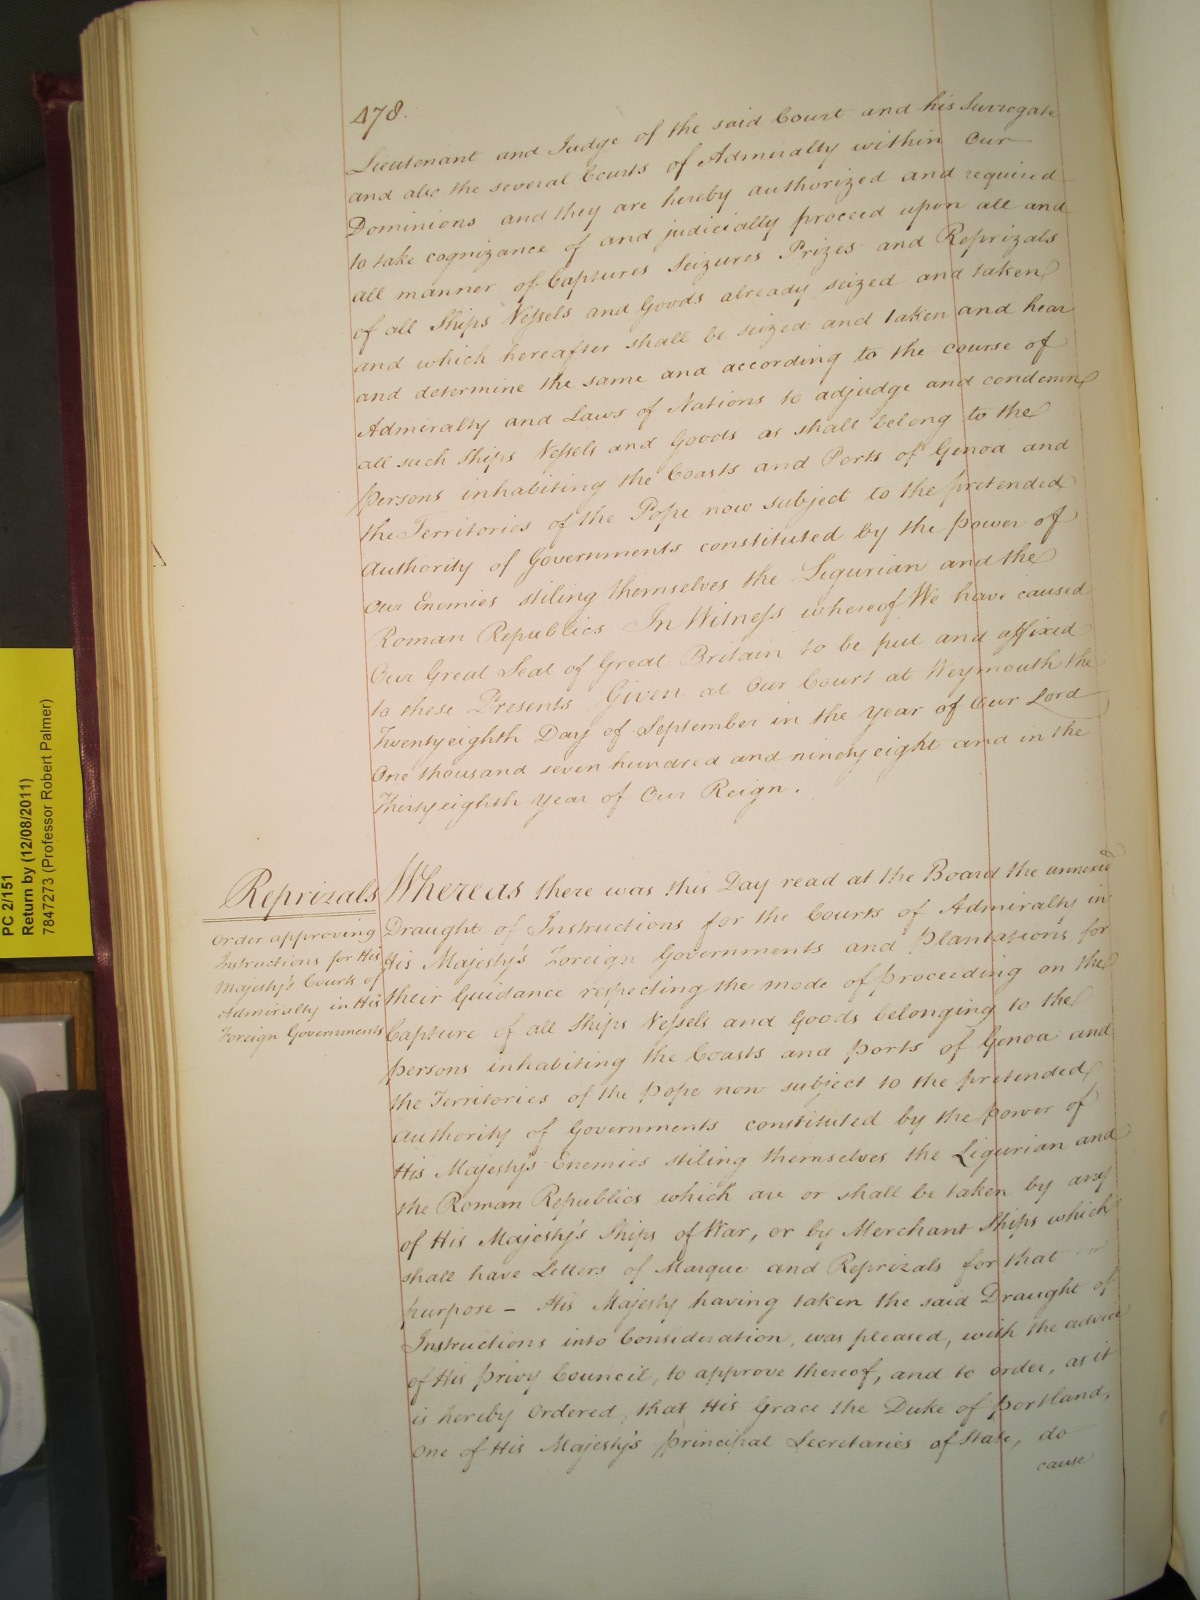 478.
Lieutenant and Judge of the said Court and his Surrogate
and also the several Courts of Admiralty within Our
Dominions and they are hereby authorized and required
to take cognizance of and judicially proceed upon all and
all manner of Captures Seizures Prizes and Reprizals
of all Ships Vessels and Goods already seized and taken
and which hereafter shall be seized and taken and hear
and determine the same and according to the course of
Admiralty and Laws of Nations to adjudge and condemn
all such Ships Vessels and Goods as shall belong to the
persons inhabiting the Coasts and Ports of Genoa and
the Territories of the Pope now subject to the pretended
Authority of Governments constituted by the power of
Our Enemies stiling themselves the Ligurian and the
Roman Republics In Witness whereof We have caused
Our Great Seal of Great Britain to be put and affixed
to these Presents Given at Our Court at Weymouth the
Twentyeighth Day of September in the Year of Our Lord
One thousand seven hundred and ninety eight and in the
Thirtyeighth Year of Our Reign.
Reprizals
Order approving
Instructions for His
Majesty's Courts of
Admiralty in His
Foreign Governments
Whereas there was this Day read at the Board the annexed
Draught of Instructions for the Courts of Admiralty in
His Majesty's Foreign Governments and Plantations for
their Guidance respecting the mode of proceeding on the
Capture of all Ships Vessels and Goods belonging to the
persons inhabiting the Coasts and Ports of Genoa and
the Territories of the Pope now subject to the pretended
Authority of Governments constituted by the power of
His Majesty's Enemies stiling themselves the Ligurian and
the Roman Republics which are or shall be taken by any
of His Majesty's Ships of War, or by Merchant Ships which
shall have Letters of Marque and Reprizals for that
purpose – His Majesty having taken the said Draught of
Instructions into Consideration, was pleased, with the advice
of His Privy Council, to approve thereof, and to order, as it
is hereby Ordered, that His Grace the Duke of Portland,
One of His Majesty's Principal Secretaries of State, do
cause
PC 2/151
Return by (12/08/2011)
7847273 (Professor Robert Palmer)